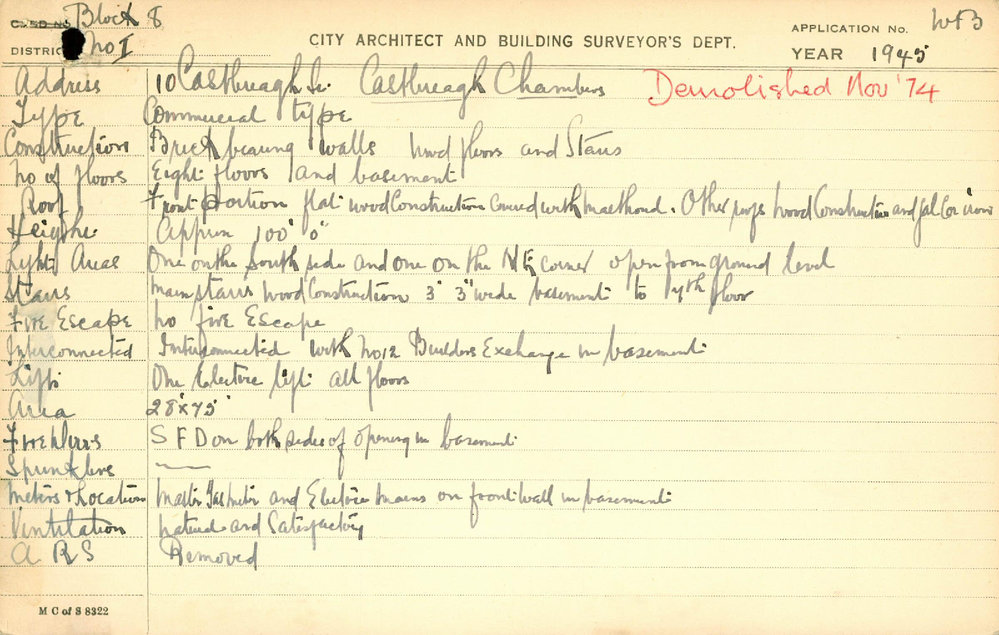 Block 8
CARD NO.
DISTRICT No I
CITY ARCHITECT AND BUILDING SURVEYOR'S DEPT.
APPLICATION No. WB
YEAR 1945
Address 10 Castlereagh St. Castlereagh Chambers Demolished Nov '74
Type Commercial type
Construction Brick bearing walls wood floors and Stairs
No of floors Eight floors and basement
Roof Front portion flat wood Construction covered with malthoid. Other roofs wood Construction and gal Cor iron
Heights Approx 100' 0"
Light Areas One on the South side and one on the NE corner open from ground level
Stairs Main stairs wood Construction 3' 3" wide basement to 7th floor
Fire Escape No fire Escape
Interconnected Interconnected with No 12 Builders Exchange in basement
Lifts One Electric lift all floors
Area 28' x 75'
Fire Doors S F D on both sides of opening in basement
Sprinklers —
Meters & Location Master Gas meter and Electric mains on front wall in basement
Ventilation Natural and Satisfactory
A R S Removed
M C of S 8322